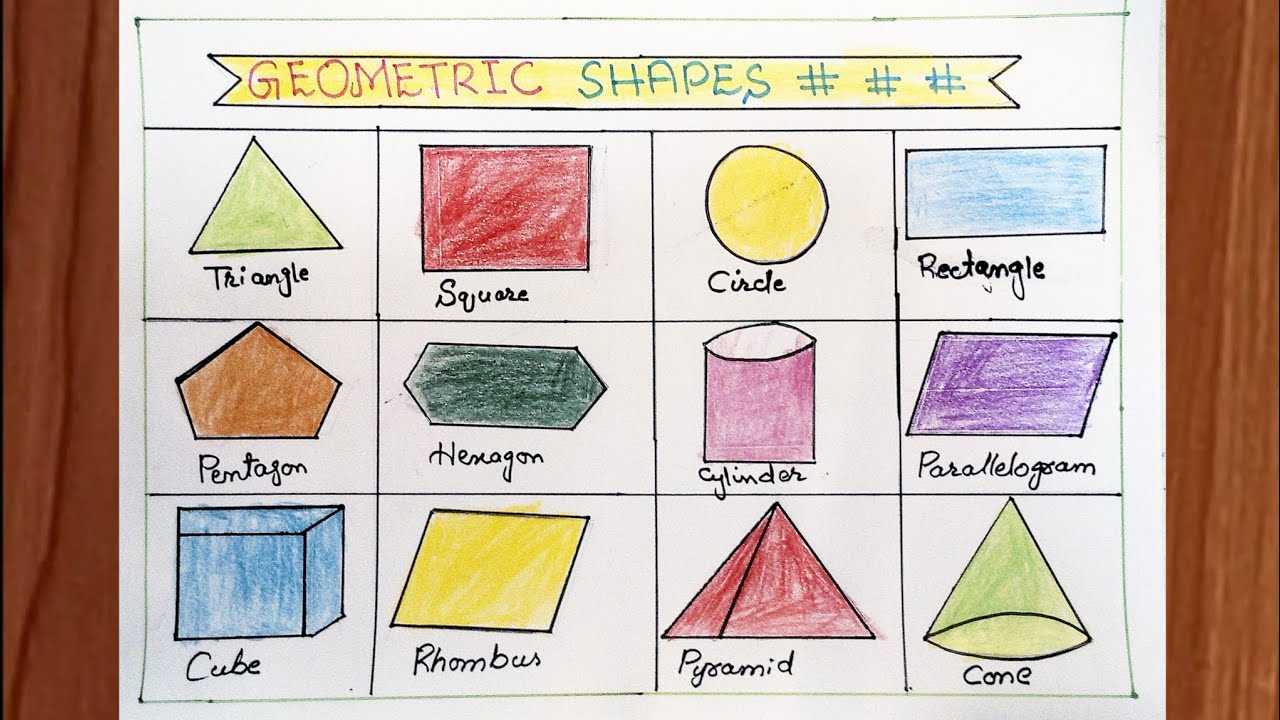 GEOMETRIC SHAPES # # #
Triangle
Square
Circle
Rectangle
Pentagon
Hexagon
Cylinder
Parallelogram
Cube
Rhombus
Pyramid
Cone